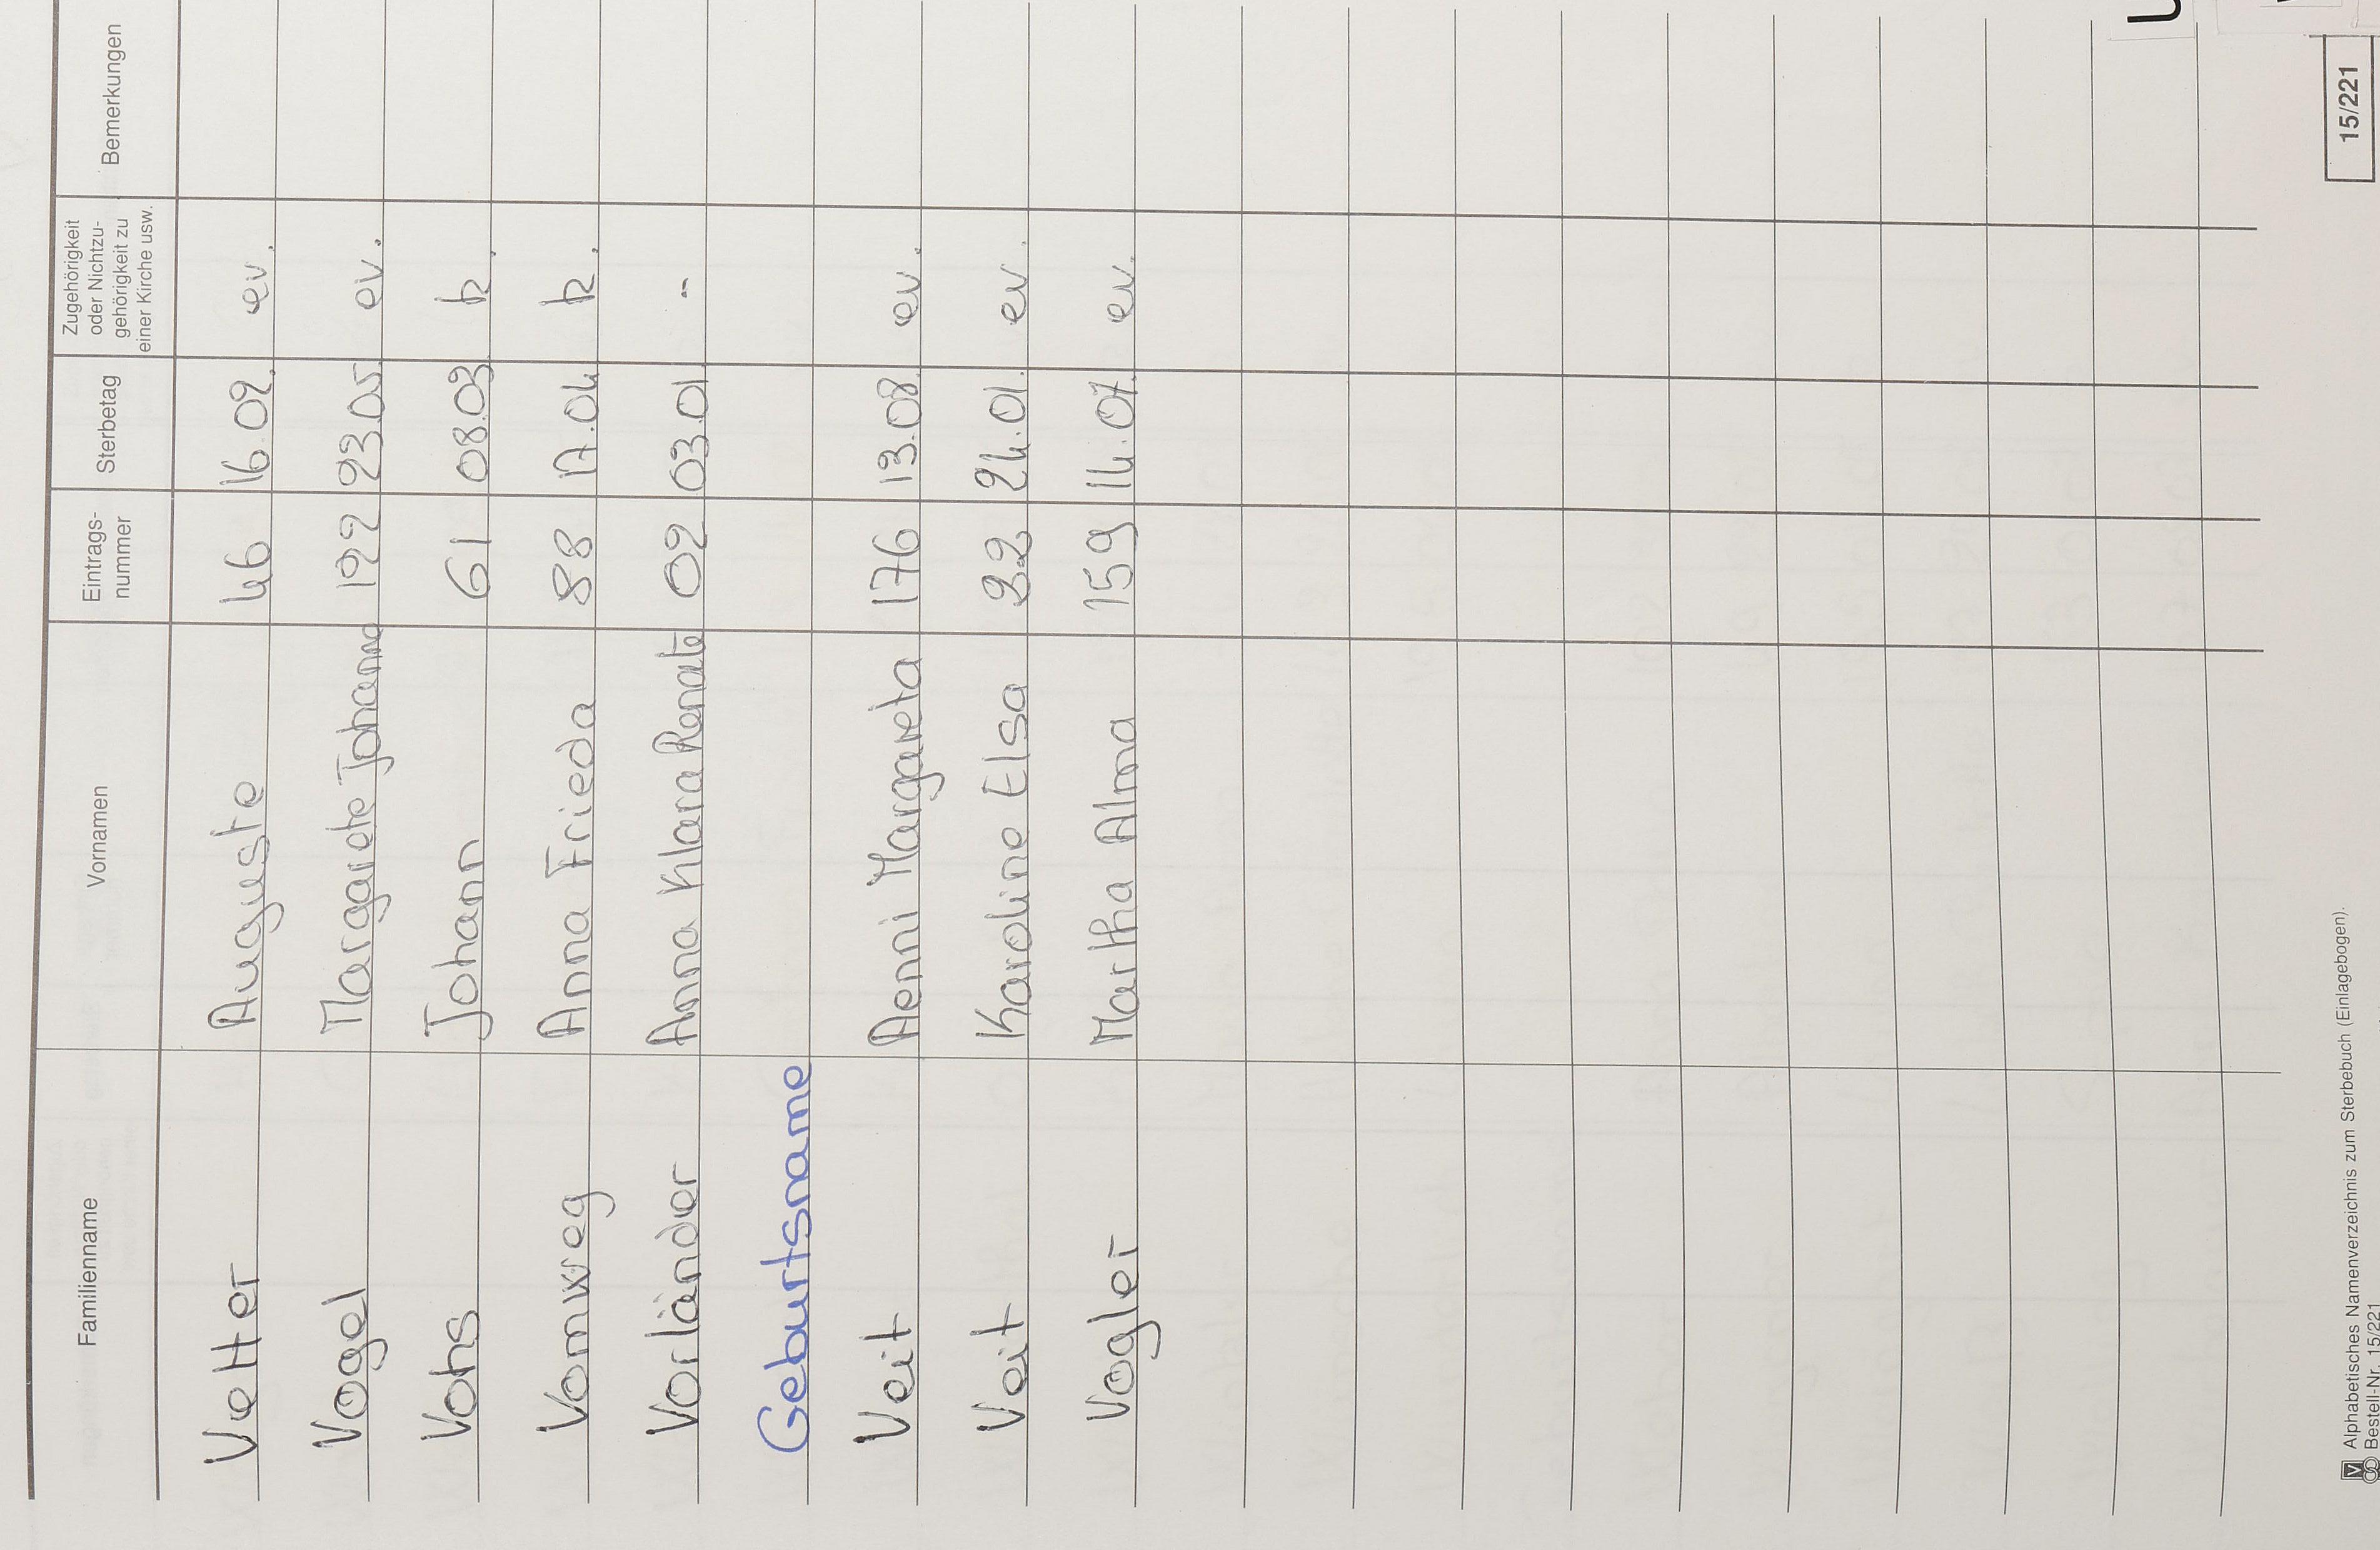 Familienname Vornamen Eintrags-nummer Sterbetag Zugehörigkeit oder Nichtzu-gehörigkeit zu einer Kirche usw. Bemerkungen
Vetter Auguste 46 16.02. ev.
Vogel Margarete Johanna 122 23.05. ev.
Vohs Johann 61 08.03. k.
Vomweg Anna Frieda 88 17.04. k.
Vorländer Anna Klara Renate 02 03.01. -
Geburtsname
Veit Aenni Margareta 176 13.08. ev.
Veit Karoline Elsa 22 24.01. ev.
Vogler Martha Alma 159 14.07. ev.
Alphabetisches Namenverzeichnis zum Sterbebuch (Einlagebogen).
Bestell-Nr. 15/221
15/221